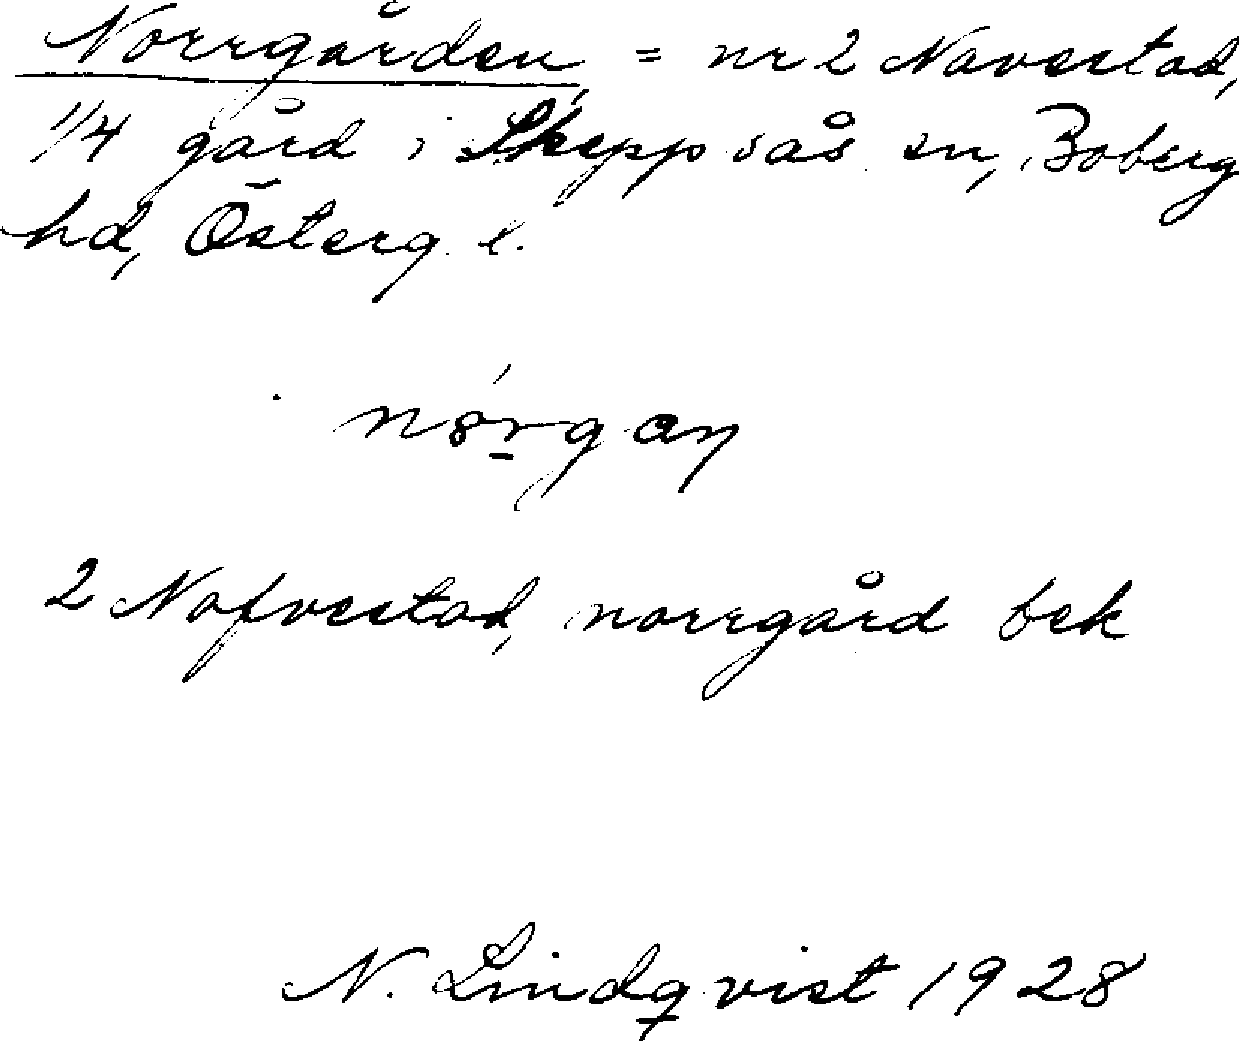 Norrgården, = nr 2 Navestad,
1/4 gård i Skeppsås sn, Boberg
hd, Österg. l.
2 Nafvestad, norrgård bek
N. Lindqvist 1928